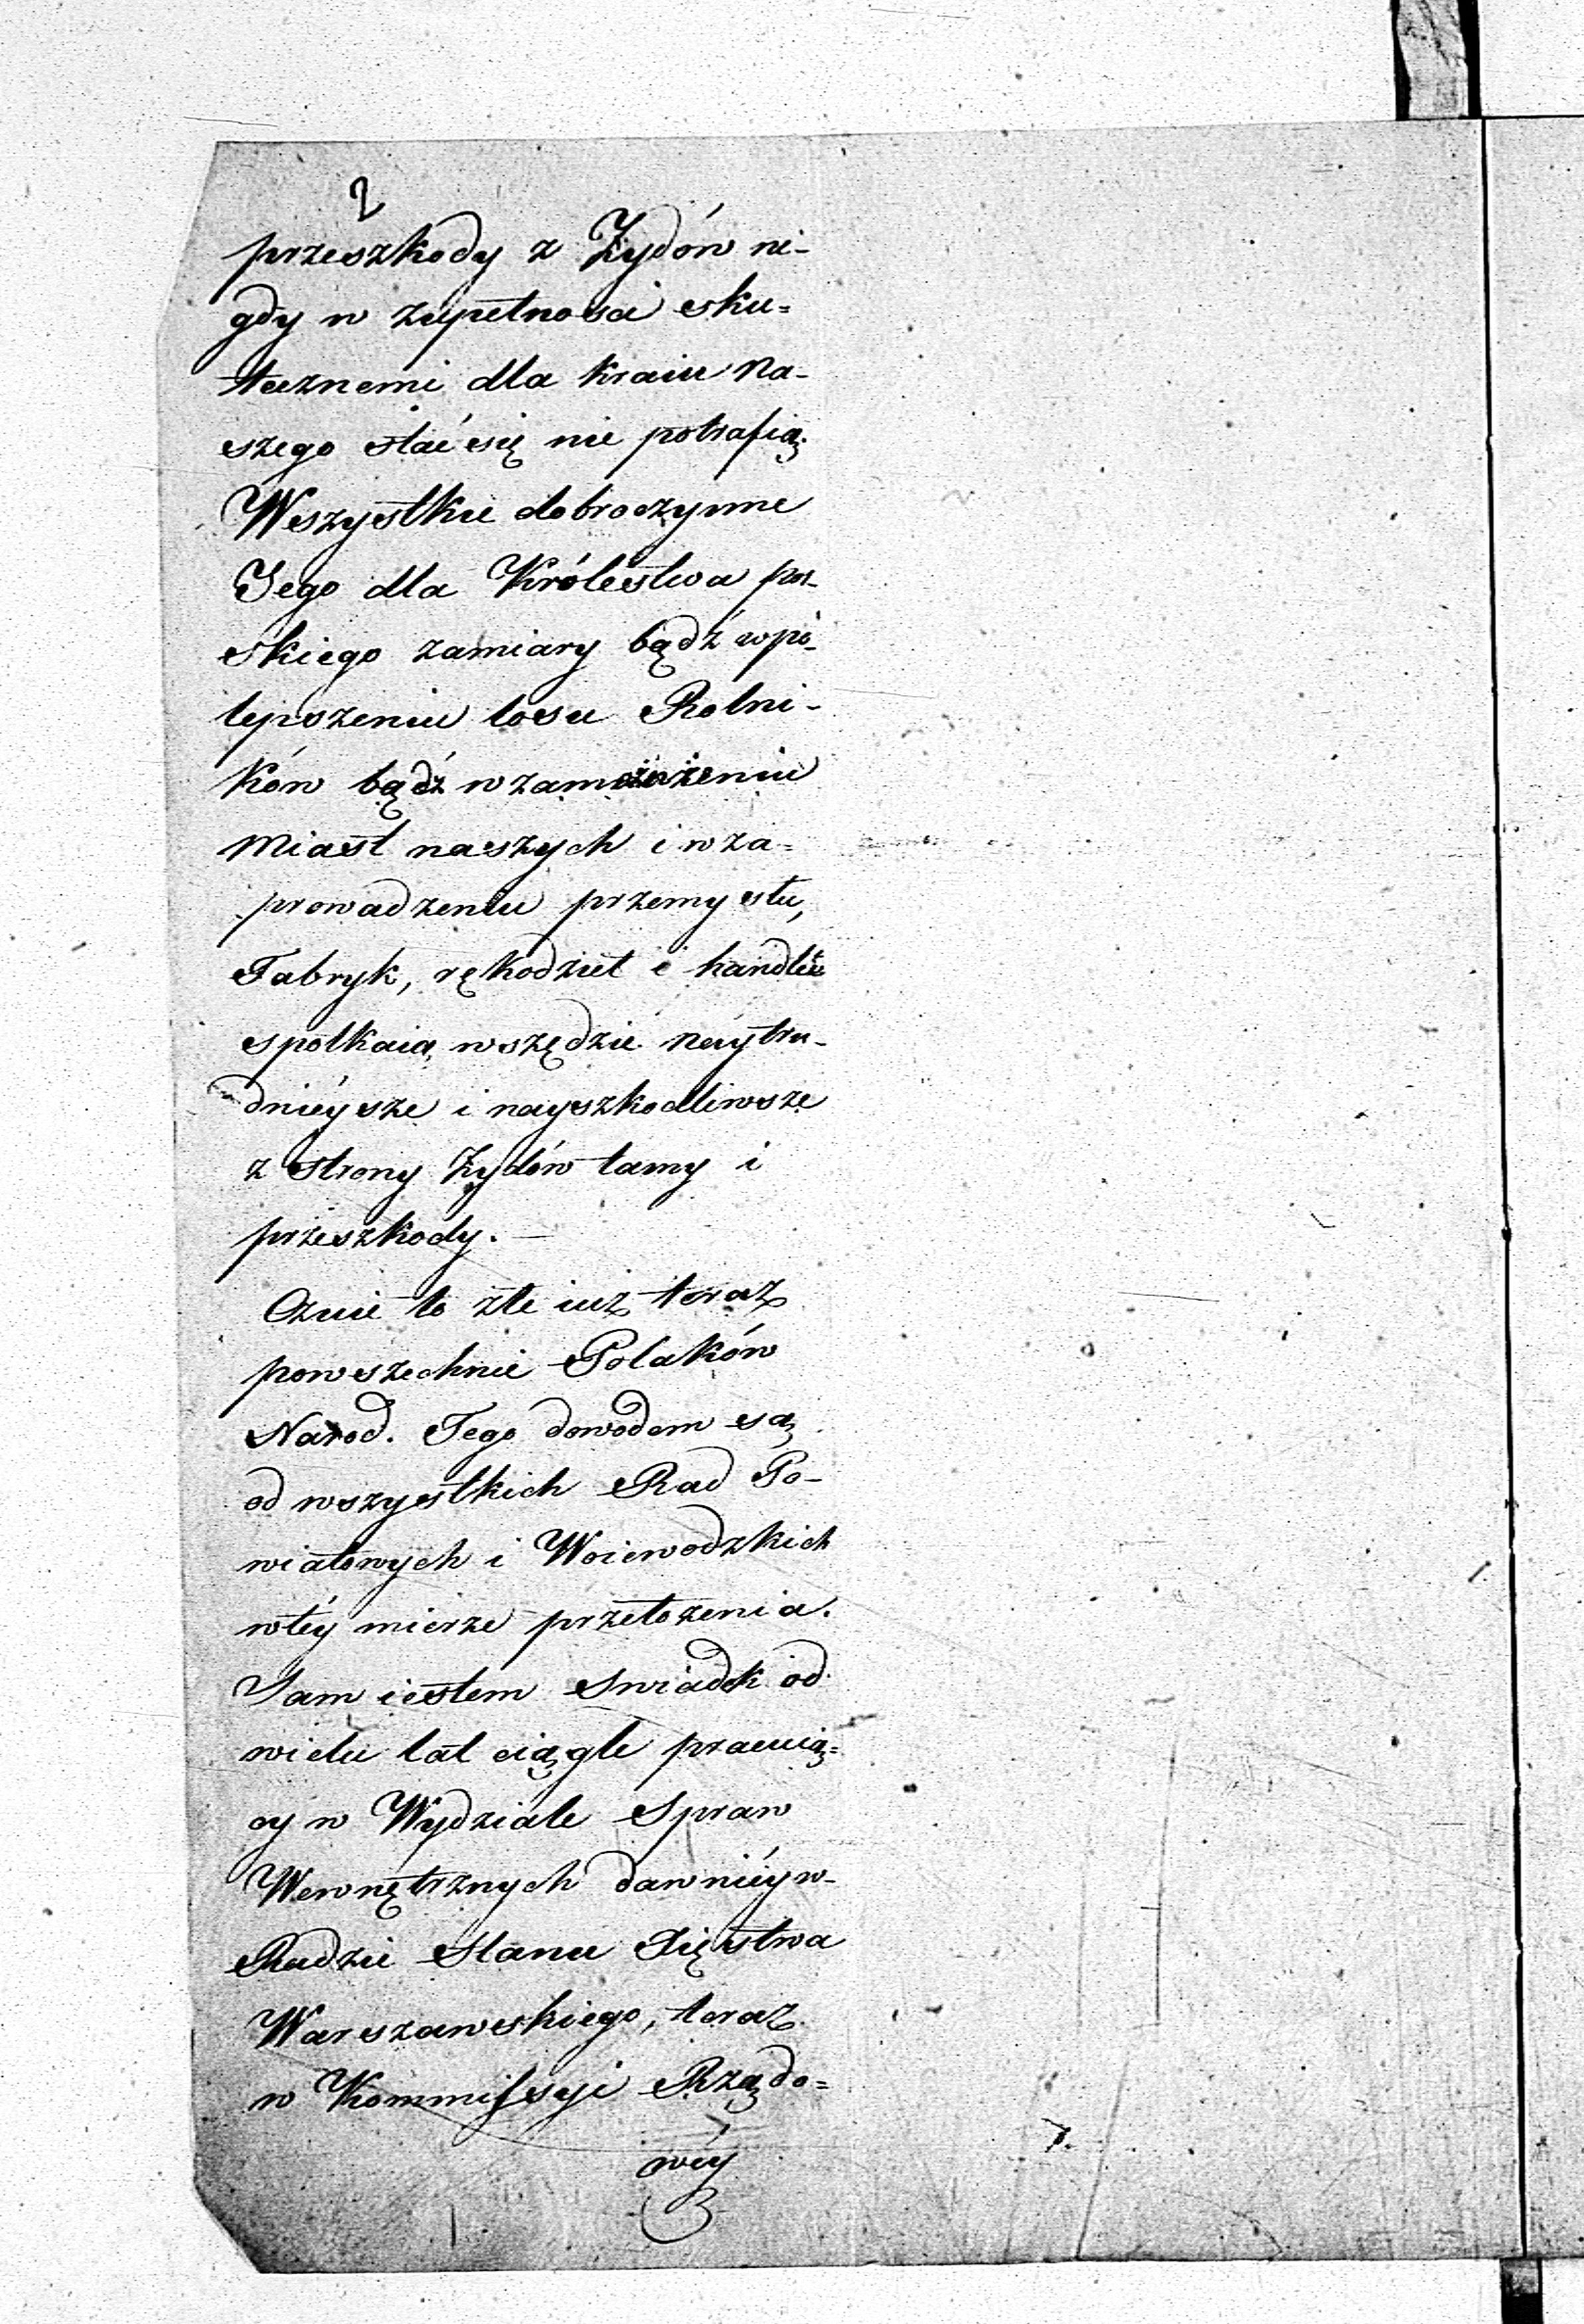 2
przeszkody z Żydów ni-
gdy w zupełności sku=
tecznemi dla kraiu na-
szego stać się nie potrafią.
Wszystkie dobroczynne
Jego dla Królestwa pol-
skiego zamiary bądź w po-
lepszeniu losu Rolni-
ków bądź w zamożeniu
miast naszych i w za=
prowadzeniu przemysłu,
Fabryk, rękodzieł i handlu
spotkaią wszędzie naytru-
dnieysze i nayszkodliwsze
z strony Żydów tamy i
przeszkody. —
Czuie to złe iuż teraz
powszechnie Polaków
Narod. Tego dowodem są
od wszystkich Rad Po-
wiatowych i Woiewodzkich
w téy mierze przełożenia.
Sam iestem Swiadek od
wielu lat ciągle pracuią=
cy w Wydziale Spraw
Wewnętrznych dawniéy w
Radzie Stanu Xięstwa
Warszawskiego, teraz
w Kommissyi Rządo=
wéy